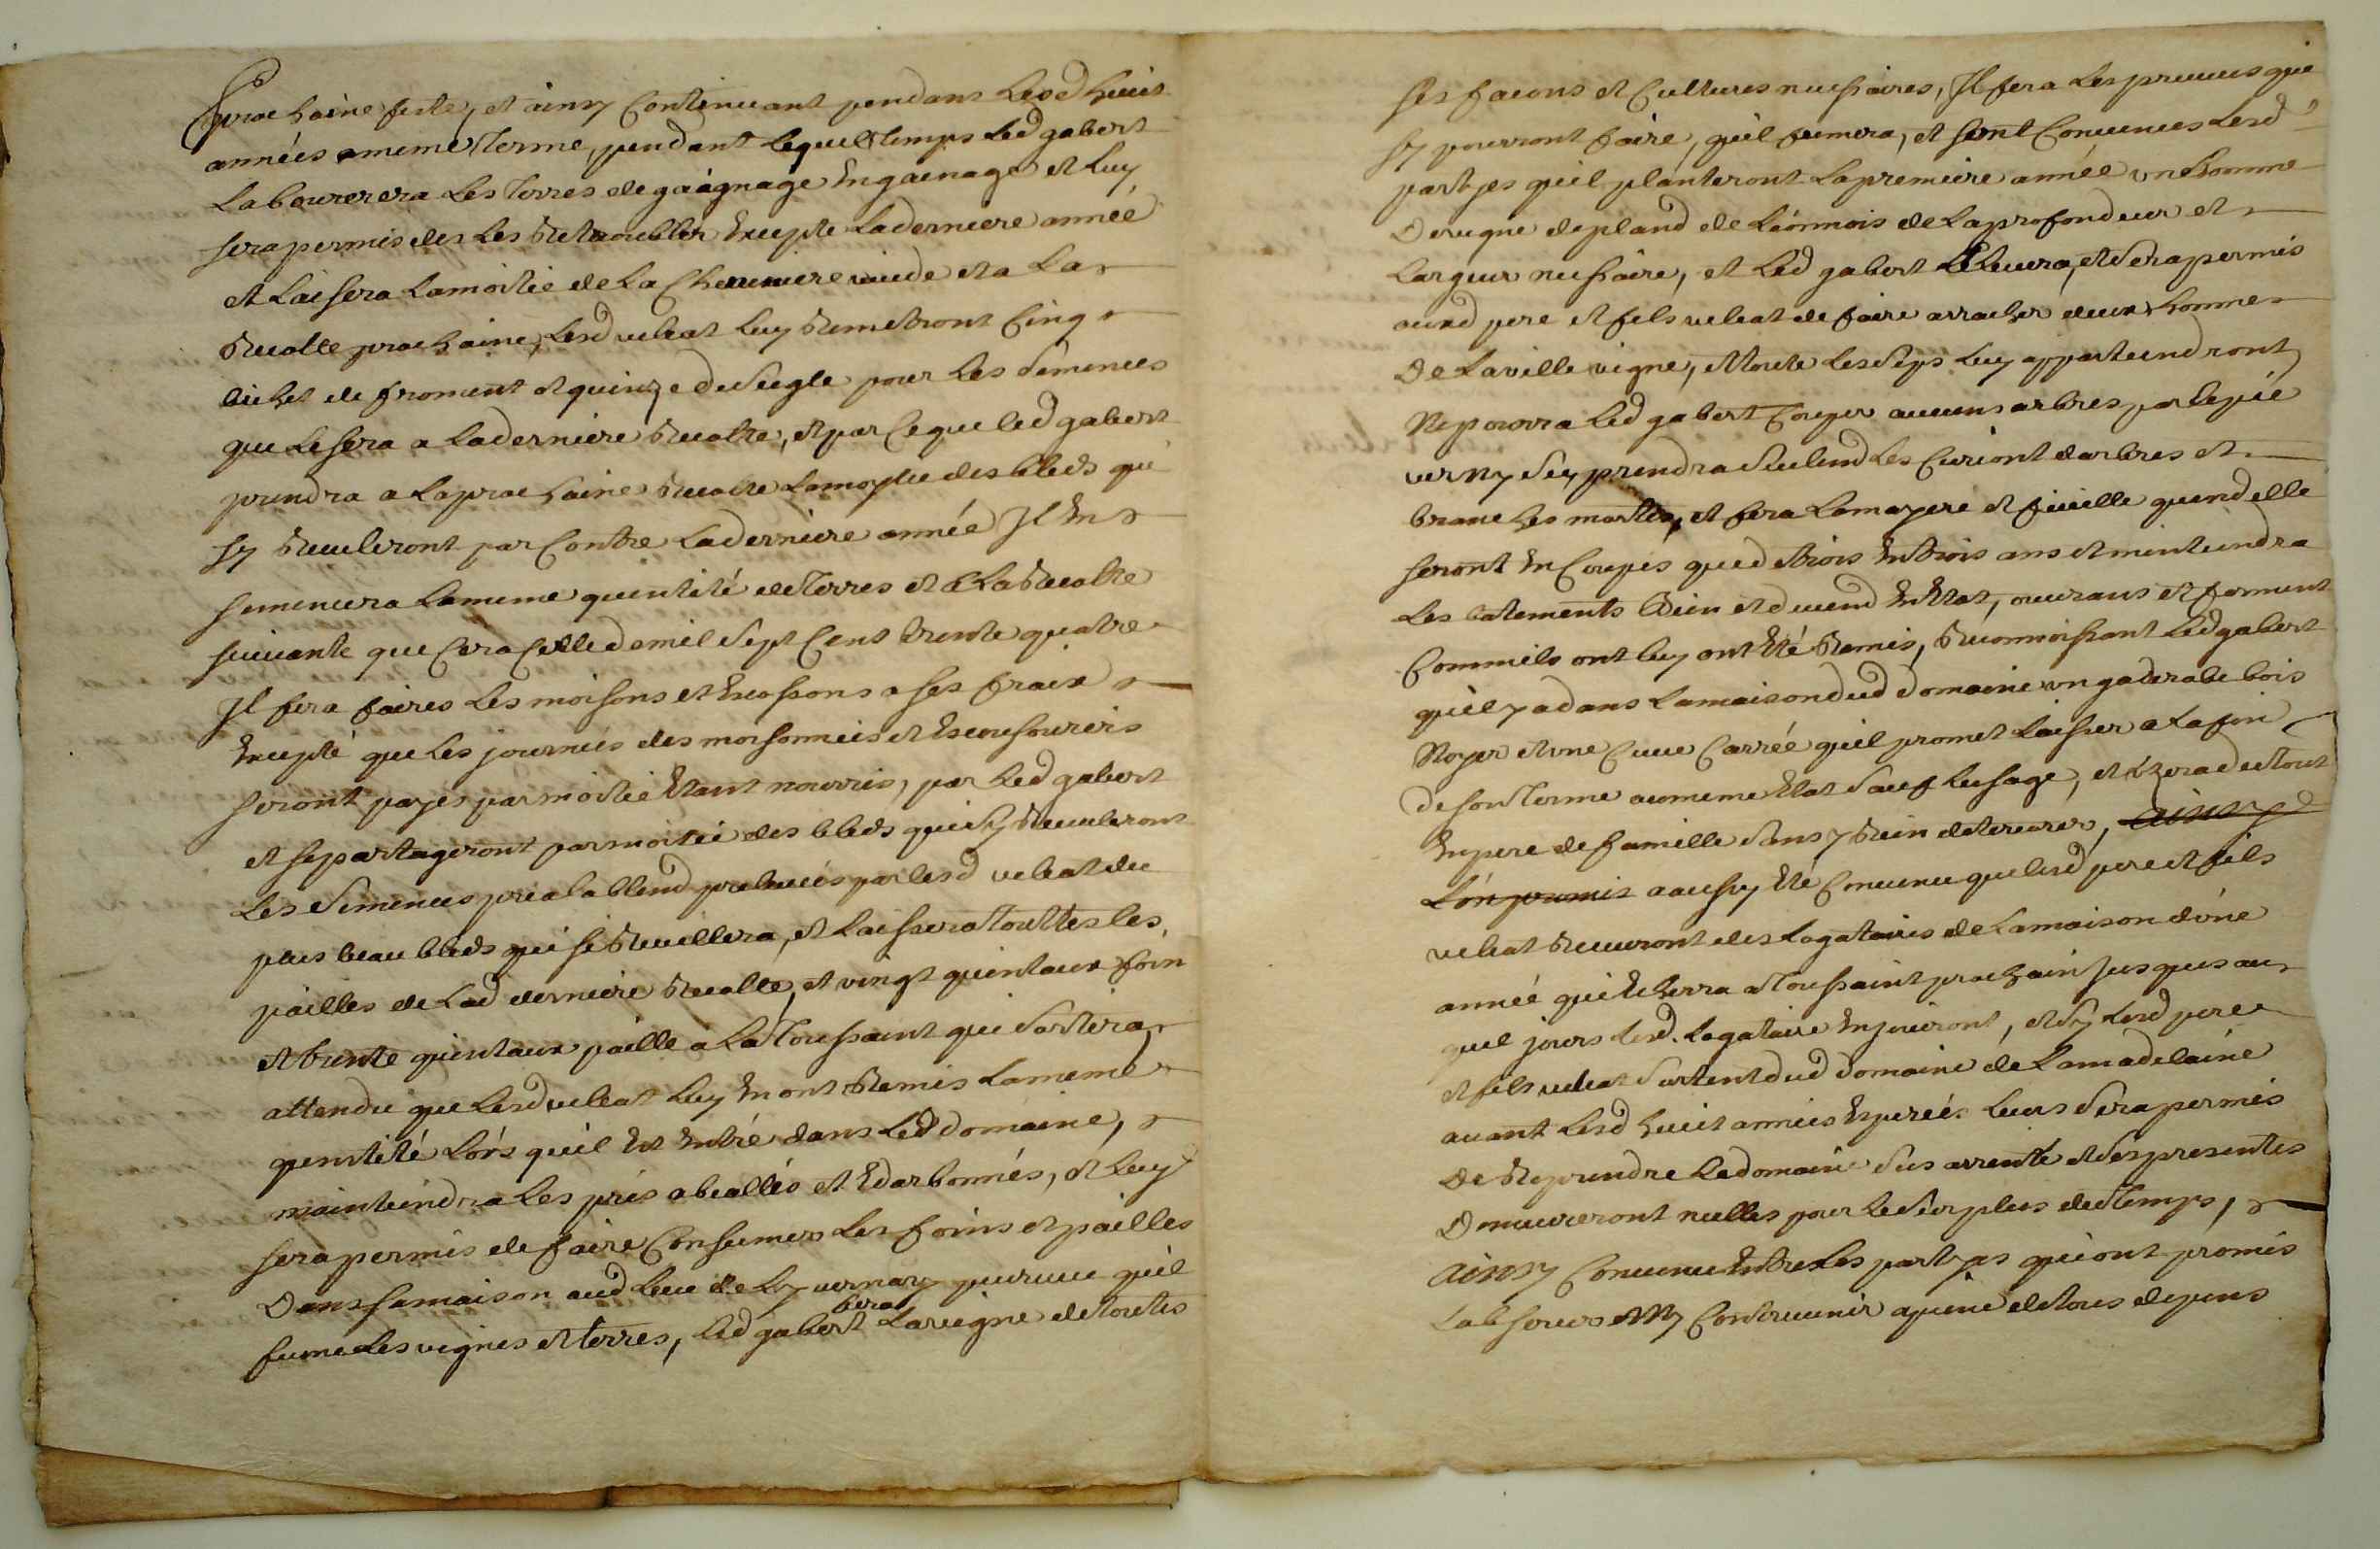 prochaine feste, et ainsy Continuant pendant Lesd huict
années a meme Terme, pendant Lequel temps Led gabert
Labourerera Les Terres de gaignage En gaenage et Luy
sera permis des Les Retroubler Excepte La derniere année
et Laissera La moitié de La Chenniere vuide et a La
Recolte prochaine, Lesd veleat Luy Remettront Cinq
bichet de froment et quinze de Seigle pour Les Semences
que Le fera a La derniere Recolte, et par Ce que led gabert
prendra a La prochaine Recolte La moytie des bleds qui
sy Receuleront par Contre La derniere année Il En
semencera La meme quentité de Terres et a La Recolte
suivante que Cera Celle de mil Sept Cent trente quatre
Il fera faires Les moisons et Escossons a ses fraix
Excepté que Les journeés des moisonneis et Escoussoureirs
seront payes par moitié Etant nourris, par Led gabert
et se partageront par moitié des bleds qui sy Receuleront
Les Semences prealablend preleueés par lesd veleat du
plus beau bleds qui se Recuillera, et Laissera Touttes les
pailles de Lad derniere Recolte, et vingt quintaux foin
et trente quintaux paille a La Toussaint qui Sortira,
attendu que Lesd veleat Luy En ont Remis La meme
quentité Lors quil Est Entré dans Led domaine,
mainteindra Les prés abeallés et Edarbonnés, et Luy
sera permis de faire Consumer Les foins et pailles
Dans sa maison aud Lieu de Ly vernay purveu quil
fume Les vignes et terres, Led gabert fera La vigne de toutes
ses facons et Cultures necessaires, Il fera Les preuues que
sy pourront faire, quil fumera, et sont Conuenues Lesd
partyes quil planteront La premiere année un homme
De vigne de pland de Léonnois de La profondeur et
Largeur necessaire, et Led gabert Leleuera, et Sera permis
auxd pere et fils veleat de faire arracher deux homme
De La vielle vigne, et toute Les Seps Luy apparteindront
Ne pourra Led gabert Couper aucuns arbres par le pié
ver ny Sey prendra Seulemd Les Curiont darbres et
branches mortes, et fera La mayere et fueille quend elle
seront En Coupes que de trois En trois ans et mainteindra
Les batements Bien et duemd En Etat, ouurans et fermant
Comm ils ont luy ont Eté Remis, Reconnoissant Led gabert
quil y a dans La maison dud domaine un gaderabe bois
Noyer et une Cuue Carrée quil promet Laisser a La fin
de son Terme au meme Etat Sauf Leusage, et Uzera du tout
En pere de famille Sans y Rein deteriorer, ainsy
L'on promis a aussy Eté Conuenu que lesd pere et fils
veleat Receuront des Legataires de La maison d'une
année qui Echerra a Toussaint prochain jusques au
quel jours Lesd. Legataire En jouiront, et Sy Lesd pere
et fils veleat Sortent dud domaine de La madelaine
auant Lesd huict années Expireés Leurs Sera permis
De Reprendre Le domaine Sus arrenté et Ses presentes
Demeureront nulles pour Le Surplus du temps,
ainsy Conuenu Entre Les partyes qui ont promis
L'absoruer et Ny Contreuenir a peine de tous depens